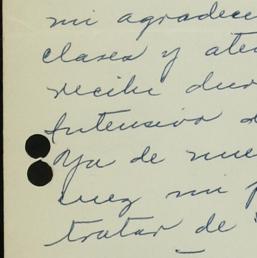 mi agradeci
clases y aten
recibi dur
Intensivo d
Ya de nue
vez mi p
tratar de